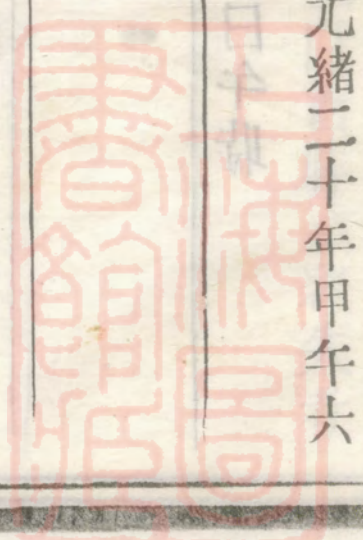 光緒二十年甲午六
上海圖
書館藏